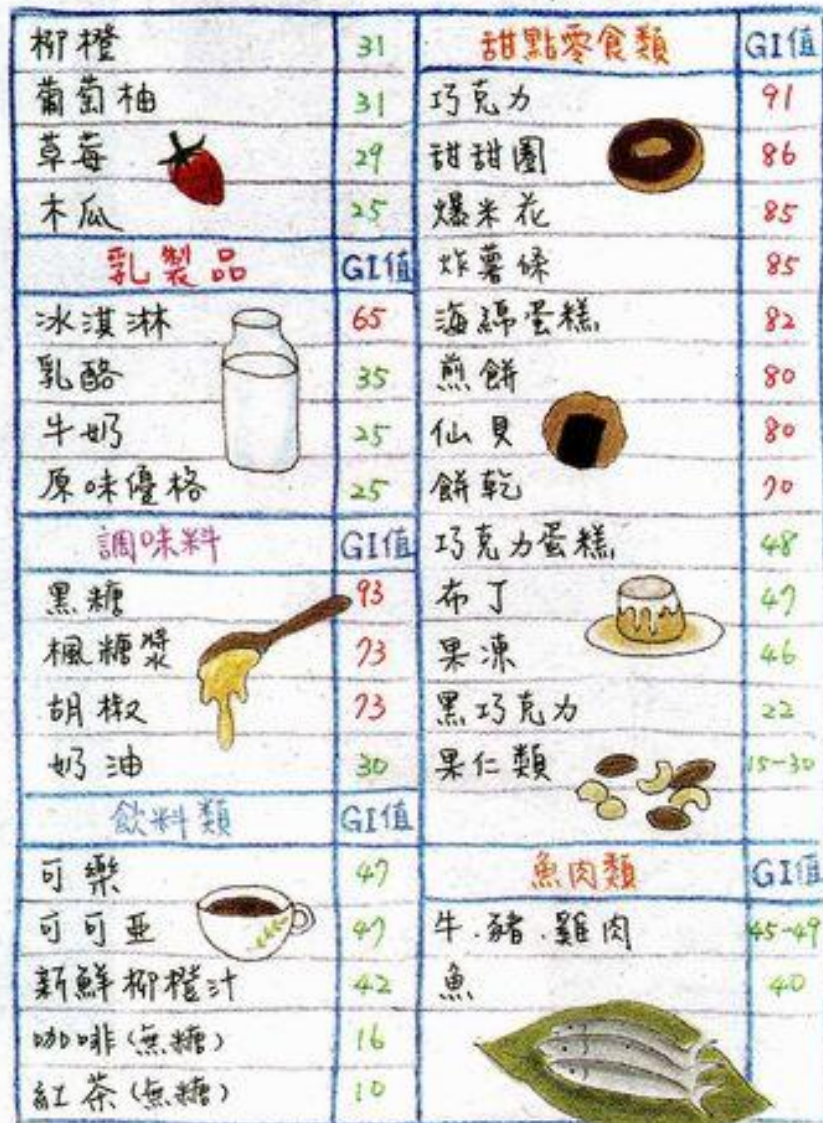 柳橙 31
葡萄柚 31
草莓 29
木瓜 25
乳製品 GI值
冰淇淋 65
乳酪 35
牛奶 25
原味優格 25
調味料 GI值
黑糖 93
楓糖漿 73
胡椒 73
奶油 30
飲料類 GI值
可樂 47
可可亞 47
新鮮柳橙汁 42
咖啡(無糖) 16
紅茶(無糖) 10
甜點零食類 GI值
巧克力 91
甜甜圈 86
爆米花 85
炸薯條 85
海綿蛋糕 82
煎餅 80
仙貝 80
餅乾 70
巧克力蛋糕 48
布丁 47
果凍 46
黑巧克力 22
果仁類 15-30
魚肉類 GI值
牛.豬.雞肉 45-49
魚 40